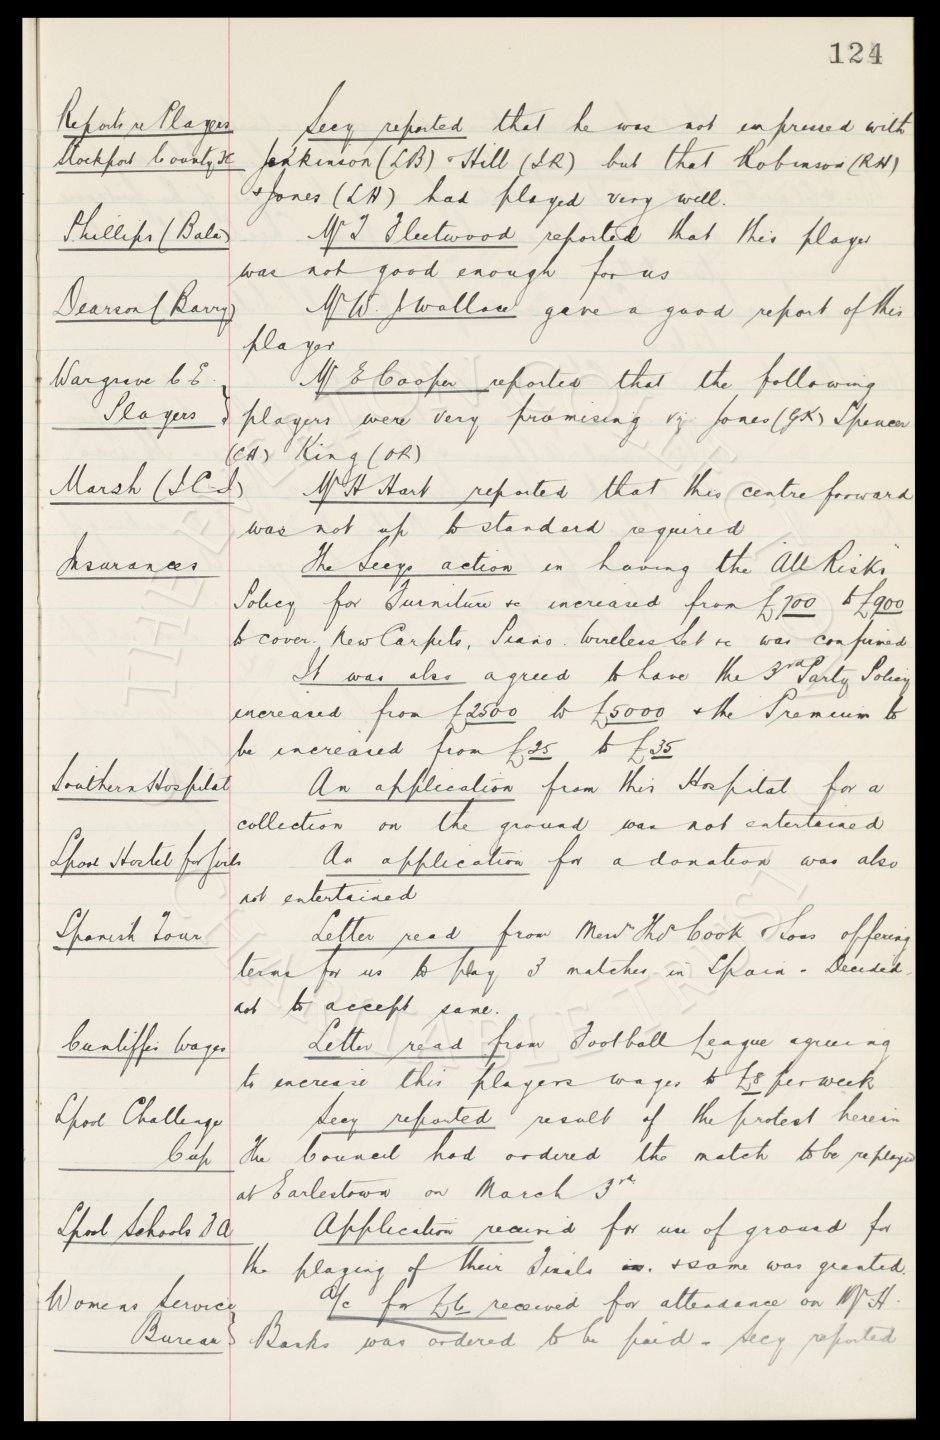 124
Reports re Players Secy reported that he was not impressed with
Stockport County FC Jenkinson (LB) & Hill (IR) but that Robinson (RH)
& Jones (LH) had played very well.
Phillips (Bala) Mr T Fleetwood reported that this player
was not good enough for us
Dearson (Barry) Mr W. J Wallace gave a good report of this
player
Wargrave C E. Mr E Cooper reported that the following
Players players were very promising viz. Jones (GK) Spencer
(CH) King (OR)
Marsh (I C I) Mr H Hart reported that this centre forward
was not up to standard required
Insurances The Secys action in having the "All Risks"
Policy for Furniture &c increased from £700 to £900
to cover. New Carpets, Piano. Wireless Set &c was confirmed
It was also agreed to have the 3rd Party Policy
increased from £2500 to £5000 & the Premium to
be increased from £25 to £35
Southern Hospital An application from this Hospital for a
collection on the ground was not entertained
Lpool Hostel for Girls An application for a donation was also
not entertained
Spanish Tour Letter read from Messrs Thos Cook & Sons offering
terms for us to play 3 matches in Spain - Decided
not to accept same.
Cunliffes Wages Letter read from Football League agreeing
to increase this players wages to £8 per week
Lpool Challenge Secy reported result of the protest herein
Cup The Council had ordered the match to be replayed
at Earlestown on March 3rd
Lpool Schools F A Application received for use of ground for
the playing of their Finals. & same was granted.
Womens Service A/c for £6 received for attendance on Mr H.
Bureau Banks was ordered to be paid - Secy reported